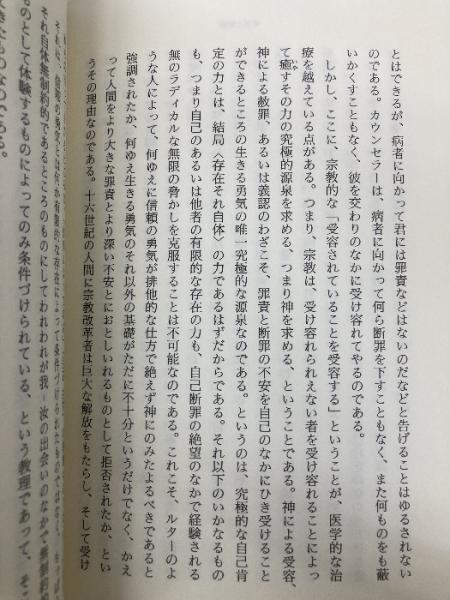 とはできるが、病者に向かって君には罪責などはないのだなどと告げることはゆるされない
のである。カウンセラーは、病者に向かって何ら断罪を下すこともなく、また何ものをも蔽
いかくすこともなく、彼を交わりのなかに受け容れてやるのである。
しかし、ここに、宗教的な「受容されていることを受容する」ということが、医学的な治
療を越えている点がある。つまり、宗教は、受け容れられえない者を受け容れることによっ
て癒すその力の究極的源泉を求める、つまり神を求める、ということである。神による受容、
神による赦罪、あるいは義認のわざこそ、罪責と断罪の不安を自己のなかにひき受けること
ができるところの生きる勇気の唯一究極的な源泉なのである。というのは、究極的な自己肯
定の力とは、結局〈存在それ自体〉の力であるはずだからである。それ以下のいかなるもの
も、つまり自己のあるいは他者の有限的な存在の力も、自己断罪の絶望のなかで経験される
無のラディカルな無限の脅かしを克服することは不可能なのである。これこそ、ルターのよ
うな人によって、何ゆえに信頼の勇気が排他的な仕方で絶えず神にのみたよるべきであると
強調されたか、何ゆえ生きる勇気のそれ以外の基礎がただに不十分というだけでなく、かえ
って人間をより大きな罪責とより深い不安とにおとしいれるものとして拒否されたか、とい
うその理由なのである。十六世紀の人間に宗教改革者は巨大な解放をもたらし、そして受け
それ自体無制約的であるところのものにしてわれわれが我－汝の出会いのなかで無制約的
ものとして体験するものによってのみ条件づけられている、という教理であって、そこ